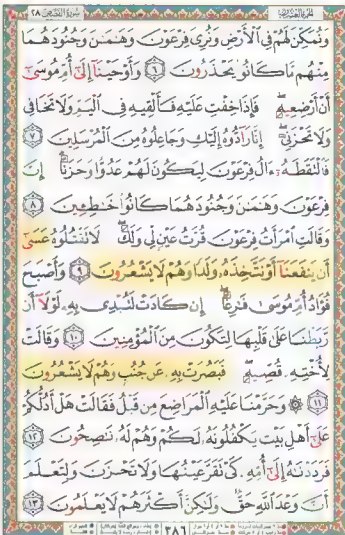 الجزء العشرون سورة القصص ٢٨
وَنُمَكِّنَ لَهُمْ فِي الْأَرْضِ وَنُرِيَ فِرْعَوْنَ وَهَامَانَ وَجُنُودَهُمَا
مِنْهُم مَّا كَانُوا يَحْذَرُونَ ٦ وَأَوْحَيْنَا إِلَىٰ أُمِّ مُوسَىٰ
أَنْ أَرْضِعِيهِ فَإِذَا خِفْتِ عَلَيْهِ فَأَلْقِيهِ فِي الْيَمِّ وَلَا تَخَافِي
وَلَا تَحْزَنِي إِنَّا رَادُّوهُ إِلَيْكِ وَجَاعِلُوهُ مِنَ الْمُرْسَلِينَ ٧
فَالْتَقَطَهُ ءَالُ فِرْعَوْنَ لِيَكُونَ لَهُمْ عَدُوًّا وَحَزَنًا إِنَّ
فِرْعَوْنَ وَهَامَانَ وَجُنُودَهُمَا كَانُوا خَاطِئِينَ ٨
وَقَالَتِ امْرَأَتُ فِرْعَوْنَ قُرَّتُ عَيْنٍ لِّي وَلَكَ لَا تَقْتُلُوهُ عَسَىٰ
أَن يَنفَعَنَا أَوْ نَتَّخِذَهُ وَلَدًا وَهُمْ لَا يَشْعُرُونَ ٩ وَأَصْبَحَ
فُؤَادُ أُمِّ مُوسَىٰ فَارِغًا إِن كَادَتْ لَتُبْدِي بِهِ لَوْلَا أَن
رَّبَطْنَا عَلَىٰ قَلْبِهَا لِتَكُونَ مِنَ الْمُؤْمِنِينَ ١٠ وَقَالَتْ
لِأُخْتِهِ قُصِّيهِ فَبَصُرَتْ بِهِ عَن جُنُبٍ وَهُمْ لَا يَشْعُرُونَ
١١ ۞ وَحَرَّمْنَا عَلَيْهِ الْمَرَاضِعَ مِن قَبْلُ فَقَالَتْ هَلْ أَدُلُّكُمْ
عَلَىٰ أَهْلِ بَيْتٍ يَكْفُلُونَهُ لَكُمْ وَهُمْ لَهُ نَاصِحُونَ ١٢
فَرَدَدْنَاهُ إِلَىٰ أُمِّهِ كَيْ تَقَرَّ عَيْنُهَا وَلَا تَحْزَنَ وَلِتَعْلَمَ
أَنَّ وَعْدَ اللَّهِ حَقٌّ وَلَٰكِنَّ أَكْثَرَهُمْ لَا يَعْلَمُونَ ١٣
٣٨٦